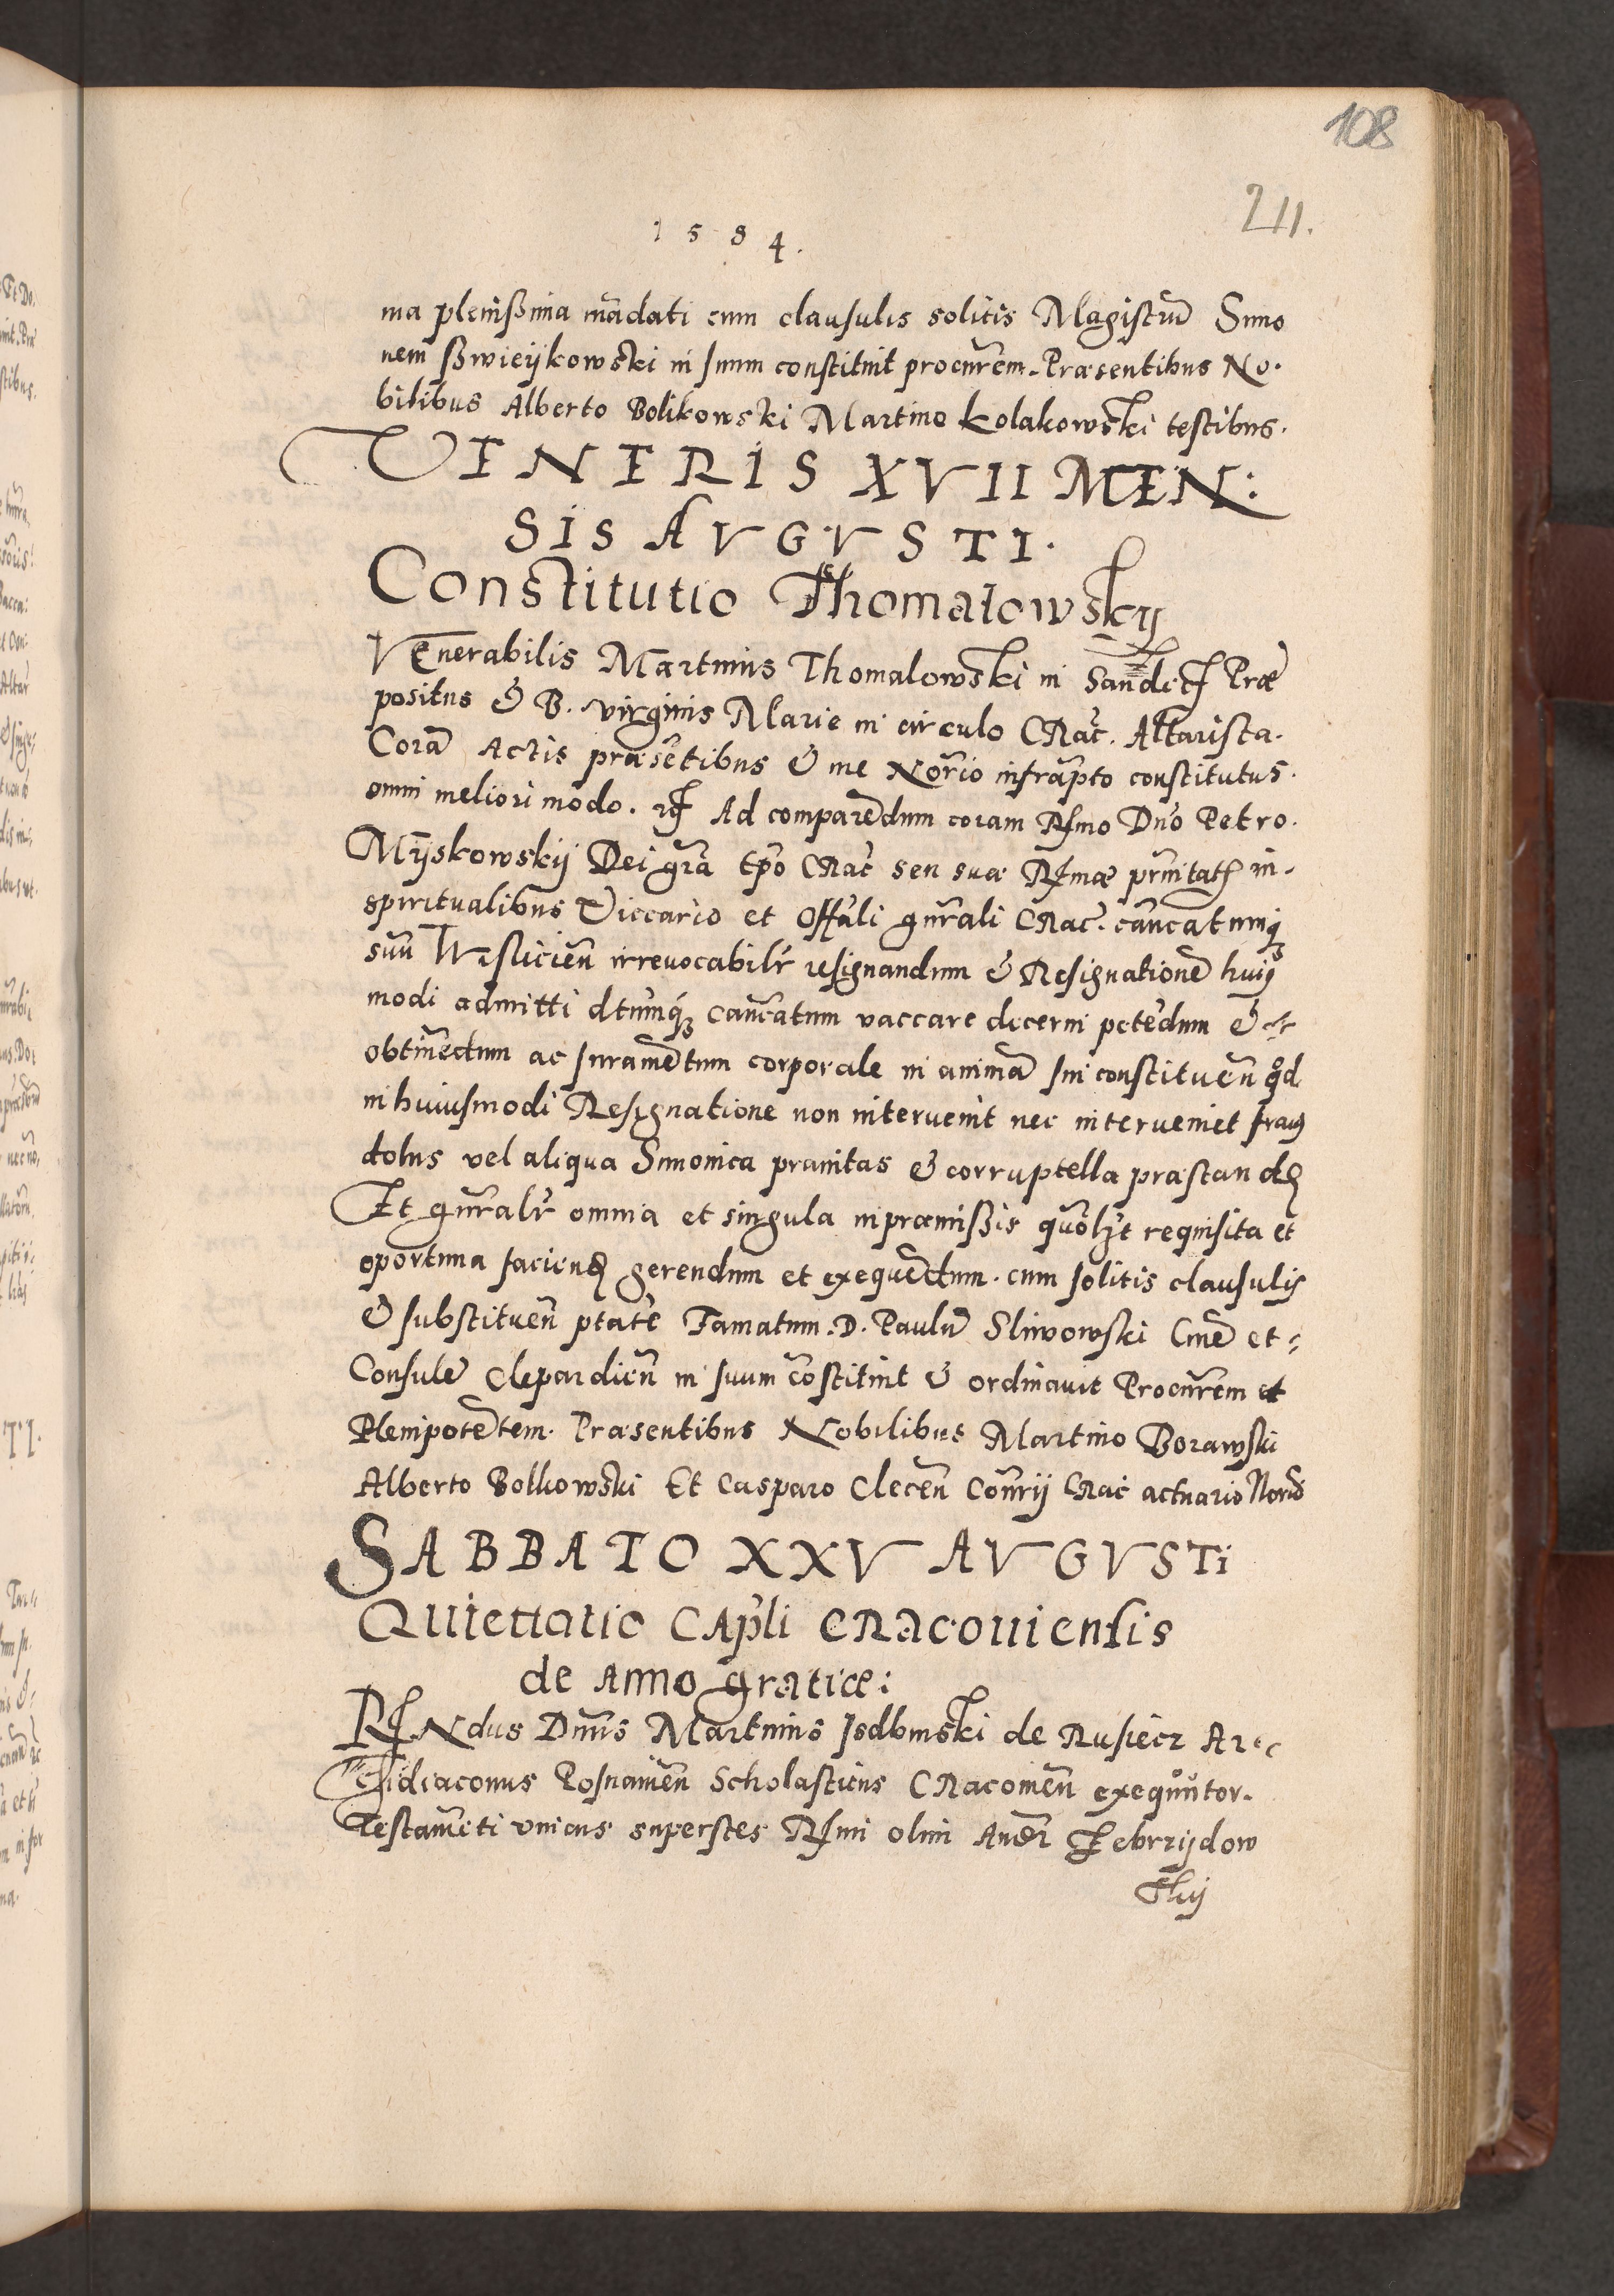 108
211.
1584.
ma plenißima mãdati cum clausulis solitis Magistrũ Simo
nem ßwieÿkowski in suum constituit procurem. Præsentibus No.
bilibus Alberto Bolikowski Martino Kolakowski testibus.
VENERIS XVII MEN:
SIS AVGVSTI.
Constitutio Thomalowskÿ
Venerabilis Martinus Thomalowski in Sandecz Præ
positus & B. virginis Marie in circulo Crac. Altarista.
Corã Actis præsẽtibus & me Norio infrapto constitutus.
omni meliori modo. Ad comparẽdum coram Rsmo Dno Petro.
Mÿskowskÿ Dei gra Epo Crac seu suæ Rsmæ prnitatis in.
spiritualibus Viccario et Offali gnrali Crac. cancatumq
suũ Wisliciẽn irrevocabilr resignandum & Resignationẽ huiq
modi admitti dtumq cancatum vaccare decerni petẽdum &
obtinẽdum ac Juramẽtum corporale in animã sui constituẽn qd
in huiusmodi Resignatione non intervenit nec interveniet fraus
dolus vel aliqua Simonica pravitas & corruptella præstand
Et gnralr omnia et singula in præmißis quolzt requisita et
oportuna faciend gerendum et exequẽdum. cum solitis clausulis
& substituẽn ptate Famatum. D. Paulũ Sliwowski Cinẽ et
Consulẽ Clepardiẽn in suum cõstituit & ordinavit Procurem et
Plenipotẽtem. Præsentibus Nobilibus Martino Borawski
Alberto Bolkowski Et Casparo Clecẽn Conrÿ Crac actuario Norio
SABBATO XXV AVGVSTi
Quiettatio Capli Cracouiensis
de Anno gratiæ:
Rndus Dnus Martinus Jsdbinski de Rusiecz Ar
chidiaconus Posnaniẽn Scholasticus Cracouiẽn exequutor.
Testamẽti unicus superstes Rsmi olim Andr Zebrzÿdow
skÿ